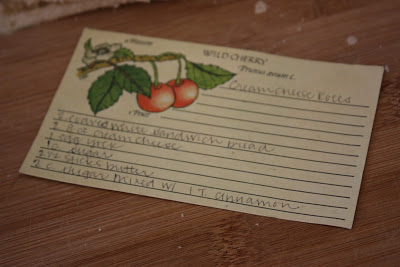 Blossom
WILD CHERRY
Prunus avium L.
Cream Cheese Rolls
Fruit
2 loaves white sandwich bread
2 8oz cream cheese
1 egg yolk
sugar
sticks butter
2 c sugar mixed w/ 1 T. cinnamon